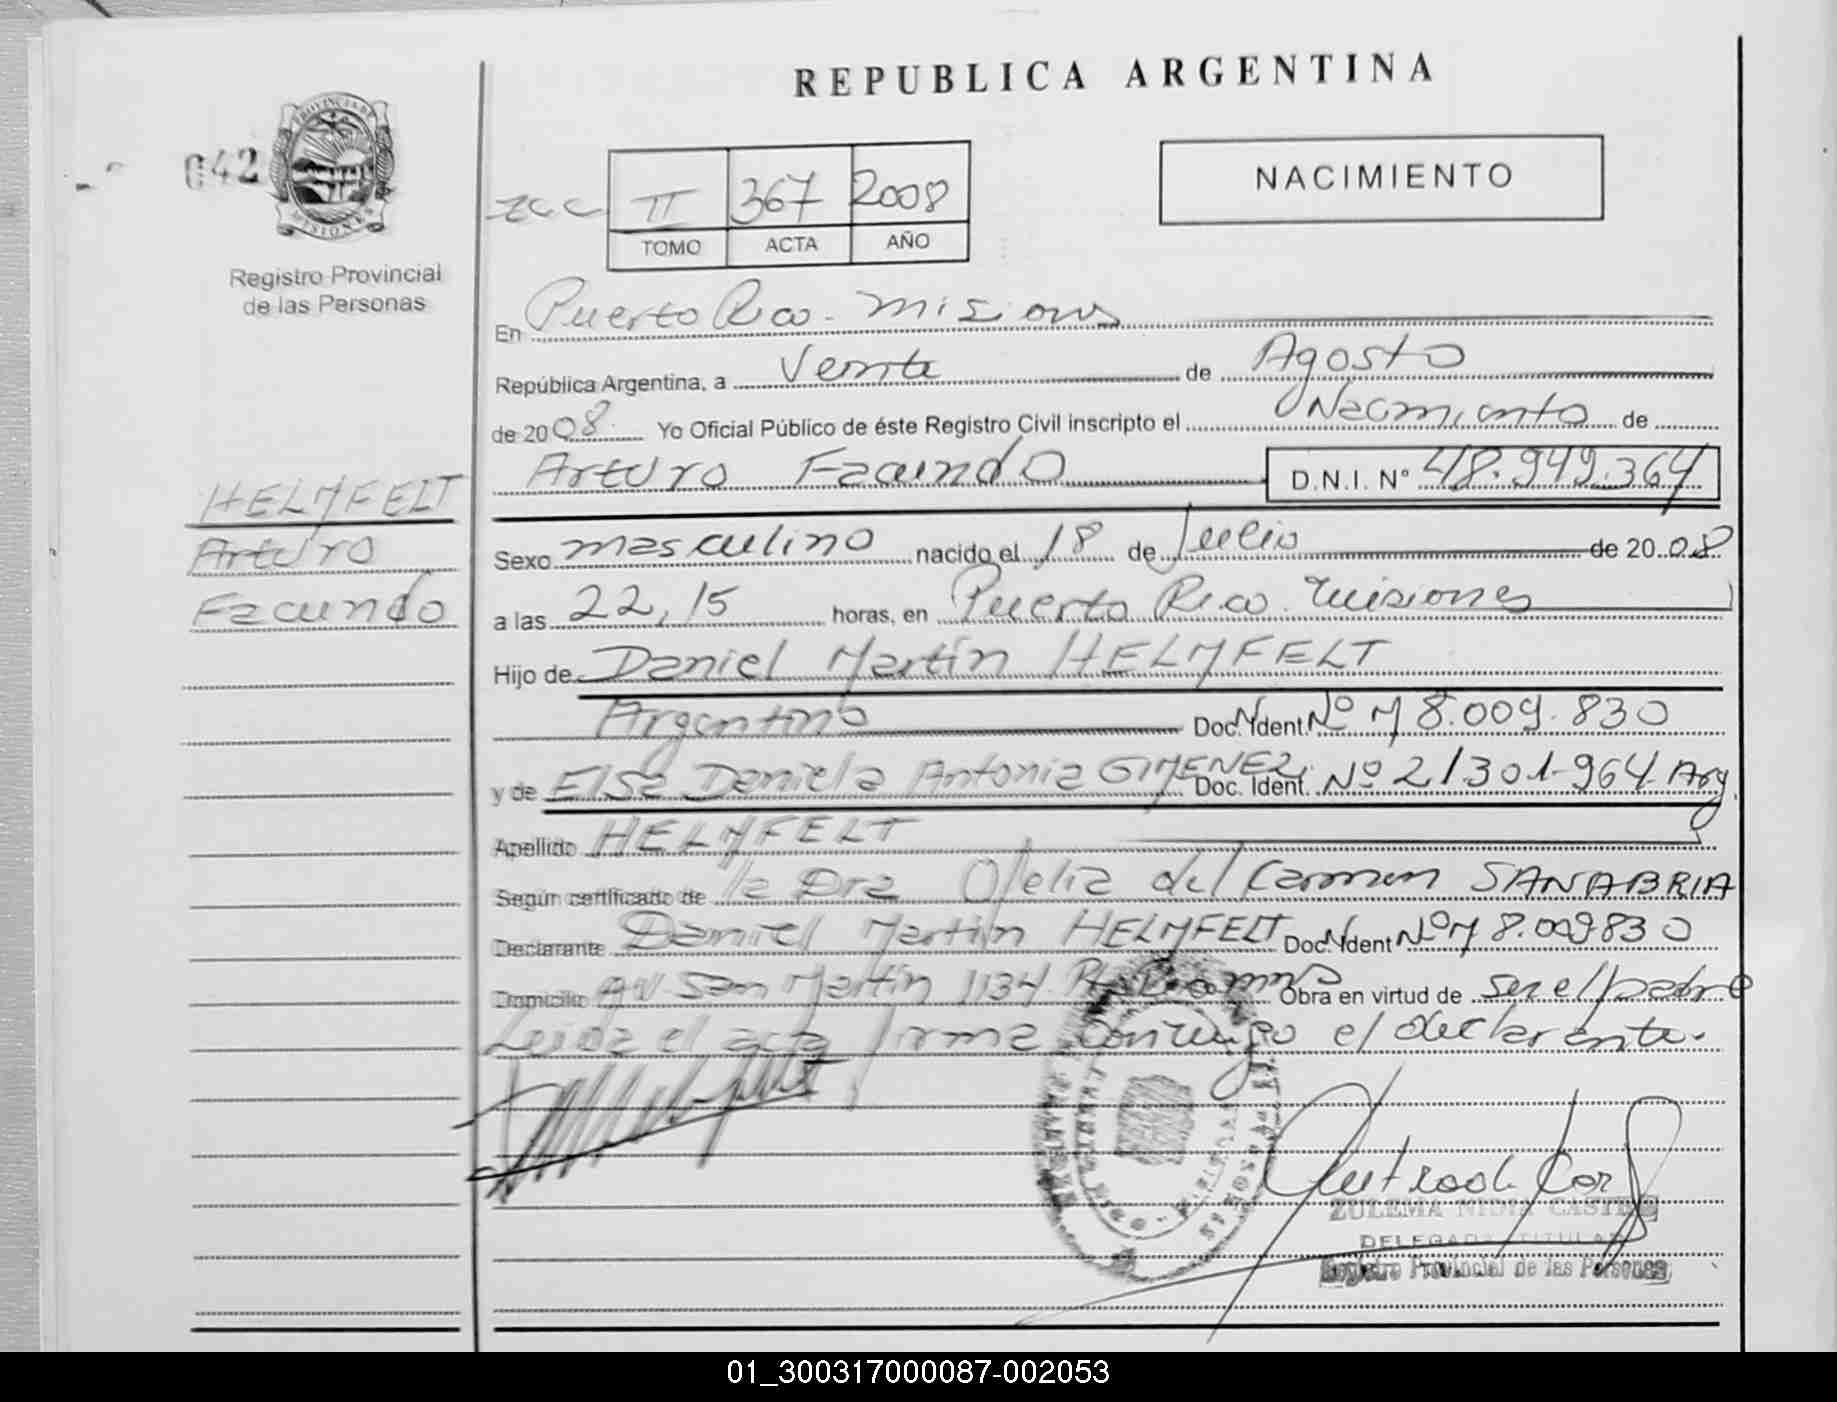 REPUBLICA ARGENTINA
042
PROVINCIA DE
MISIONES
Registro Provincial
de las Personas
NACIMIENTO
II 367 2008
TOMO ACTA AÑO
En Puerto Rico - Misiones
República Argentina, a Veinte de Agosto
de 2008 Yo Oficial Público de éste Registro Civil inscripto el Nacimiento de
Arturo Facundo D.N.I. Nº 48.949.364
HELMFELT
Arturo
Facundo
Sexo masculino nacido el 18 de Julio de 2008
a las 22,15 horas, en Puerto Rico Misiones
Hijo de Daniel Martin HELMFELT
Argentino Doc. Ident. Nº M 8.009.830
y de Elsa Daniela Antonia GIMENEZ Doc. Ident. Nº 21301.964 Arg
Apellido HELMFELT
Según certificado de la Dra Ofelia del Carmen SANABRIA
Declarante Daniel Martin HELMFELT Doc. Ident Nº M 8.009830
Domicilio AV San Martin 1134 Obra en virtud de ser el padre
Leida el acta firma conmigo el declarante.
ZULEMA NIDIA
DELEGADA TITULAR
Registro Provincial de las Personas
01_300317000087-002053